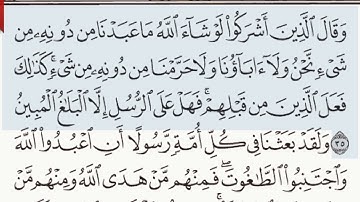 وَقَالَ ٱلَّذِينَ أَشۡرَكُواْ لَوۡ شَآءَ ٱللَّهُ مَا عَبَدۡنَا مِن دُونِهِۦ مِن
شَيۡءٖ نَّحۡنُ وَلَآ ءَابَآؤُنَا وَلَا حَرَّمۡنَا مِن دُونِهِۦ مِن شَيۡءٖۚ كَذَٰلِكَ
فَعَلَ ٱلَّذِينَ مِن قَبۡلِهِمۡۚ فَهَلۡ عَلَى ٱلرُّسُلِ إِلَّا ٱلۡبَلَٰغُ ٱلۡمُبِينُ
٣٥ وَلَقَدۡ بَعَثۡنَا فِي كُلِّ أُمَّةٖ رَّسُولًا أَنِ ٱعۡبُدُواْ ٱللَّهَ
وَٱجۡتَنِبُواْ ٱلطَّٰغُوتَۖ فَمِنۡهُم مَّنۡ هَدَى ٱللَّهُ وَمِنۡهُم مَّنۡ